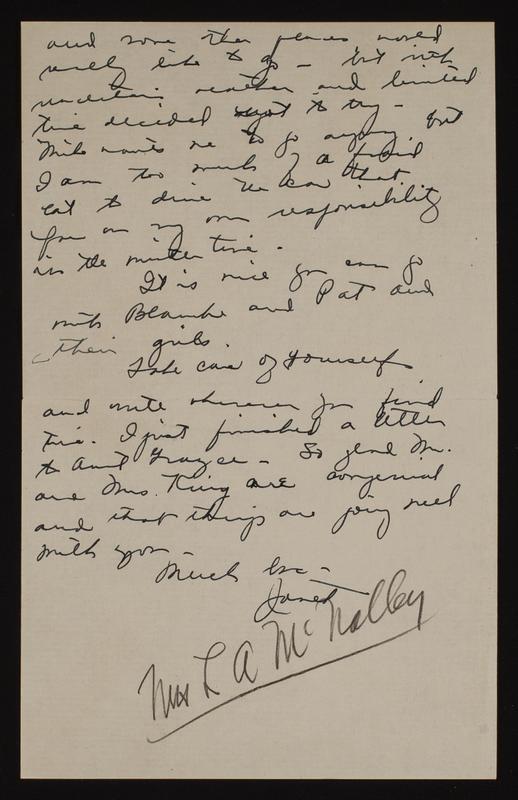 and some other places would
really like to go – but with
uncertain weather and limited
time decided not to try –
Milt wants me to go anyway but
I am too much of a fraid
cat to drive the car that
far on my own responsibility
in the winter time.
It is nice you can go
with Blanche and Pat and
their girls.
Take care of yourself
and write whenever you find
time. I just finished a letter
to Aunt Grayce – So glad Mr.
and Mrs. King are congenial
and that things are going well
with you –
Much love –
Janet
Mrs L A McNalley